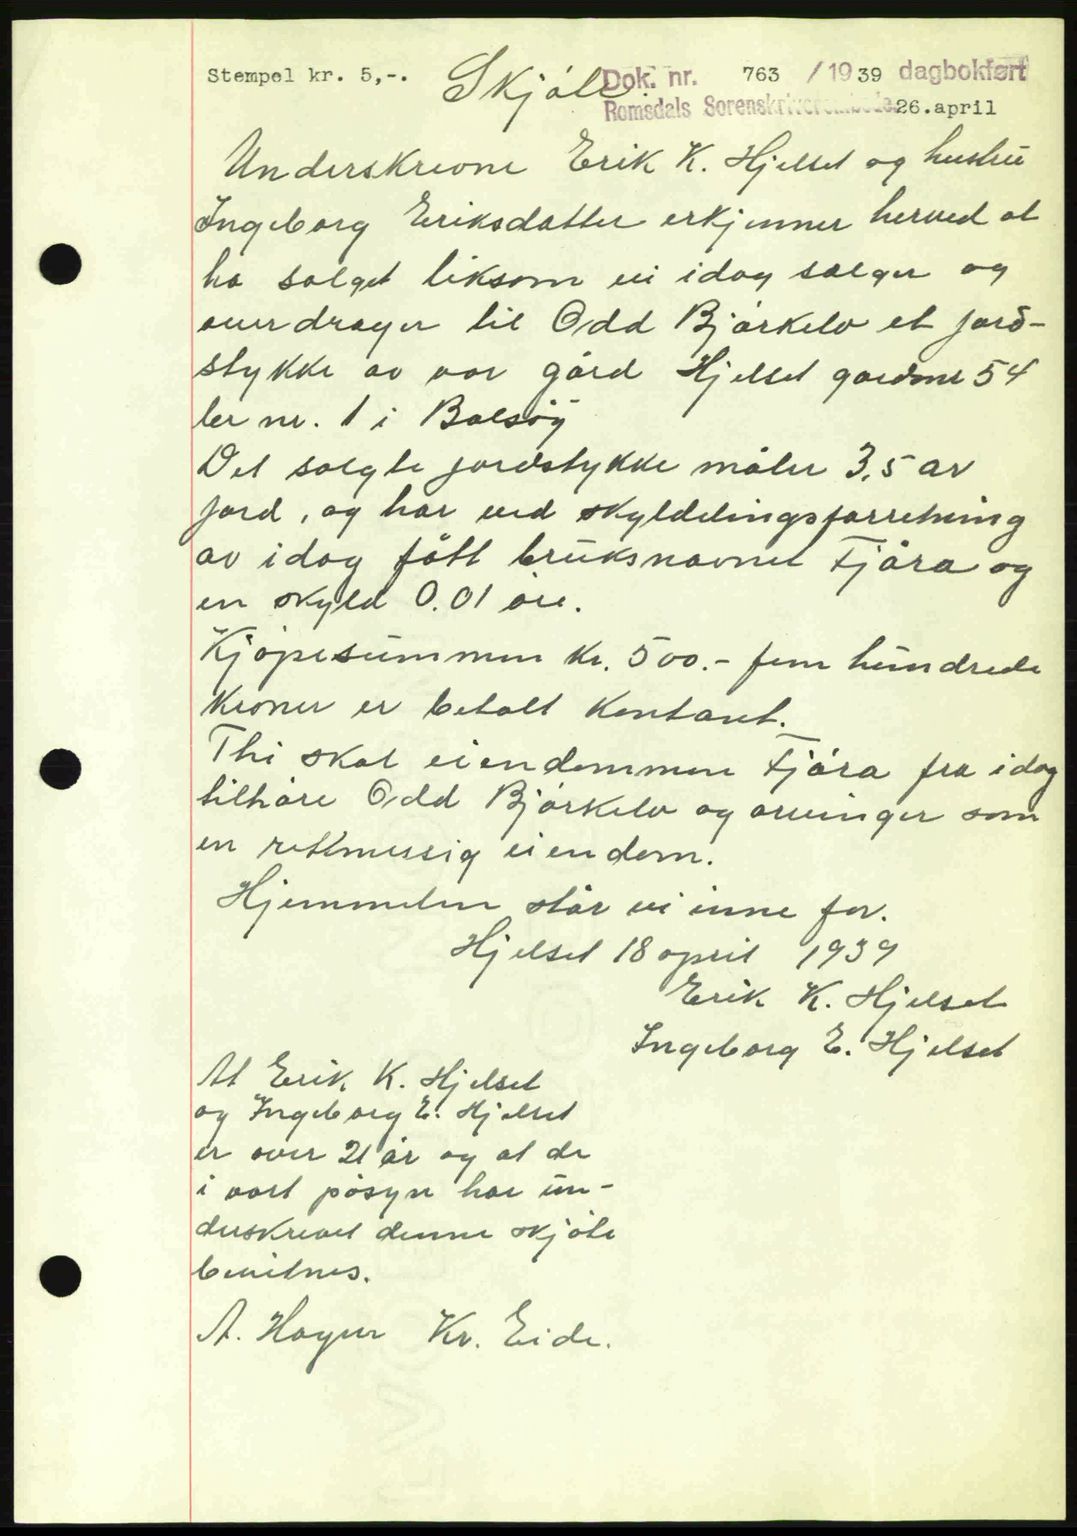 Stempel kr. 5,-. Skjöte. Dok. nr. 763 / 1939 dagbokført
Romsdals Sorenskriverembede 26.april
Underskrevne Erik K. Hjelset og hustru
Ingeborg Eriksdatter erkjenner herved at
ha solget liksom vi idag sælger og
overdrager til Odd Bjørkelv et jord-
stykke av vor gård Hjelset gardsnr 54
br nr. 1 i Bolsöy
Det solgte jordstykke måler 3,5 ar
jord, og har ved skylddelingsforretning
av idag fått bruksnavnet Fjöra og
en skyld 0.01 öre.
Kjöpesummen kr. 500.- fem hundrede
kroner er betalt kontant.
Thi skal eiendommen Fjöra fra idag
tilhöre Odd Björkelv og arvinger som
en rettmessig eiendom.
Hjemmelen står vi inne for.
Hjelset 18 april 1939
Erik K. Hjelset
Ingeborg E. Hjelset
At Erik K. Hjelset
og Ingeborg E. Hjelset
er over 21 år og at de
i vort påsyn har un-
derskrevet denne skjöte
bevitnes.
A. Kr. Eide.